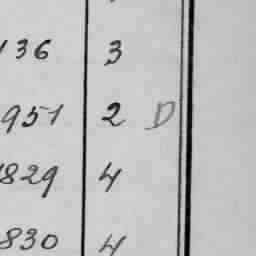 136 3
951 2 D
829 4
830 4